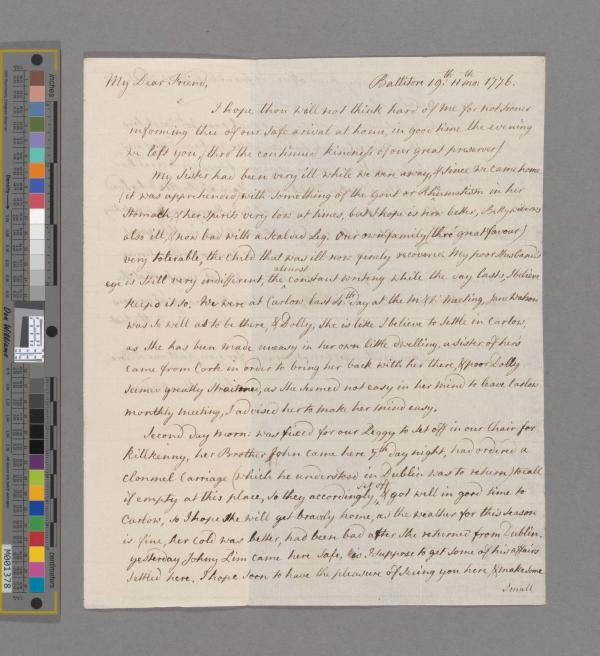 My Dear Friend,
Ballitore 19th. 11th mo: 1776.
I hope thou will not think hard of me for not sooner
informing thee of our safe arival at home, in good time the evening
we left you, thro' the continued kindness of our great preserver/
My Sister had been very ill while we were away, & since we came home
(it was apprehended) with something of the Gout or Rheumatism in her
Stomach, & her Spirits very low at times, but I hope is now better,
also ill, (now bad with a Scalded Leg. Our own family (thro' great favour)
very tolerable, the Child that was ill now finely recovered My poor Husband's
eye is still very indifferent, the almost constant writing while the day lasts, I believe
keeps it so. We were at Carlow last 4th day at the Mo: Meeting, Jane Watson
was so well as to be there, & Dolly, she is like I believe to settle in Carlow,
as she has been made uneasy in her own little dwelling, a sister of hers
came from Cork in order to bring her back with her there, & poor Dolly
seemed greatly straitned, as she seemed not easy in her mind to leave Carlow
monthly meeting, I advised her to make her mind easy.
Second day morn: was fixed for our Peggy to set off in our Chair for
Kilkenny, her Brother John came here 7th day night, had ordered a
Clonmel Carriage (which he understood in Dublin was to return) to call
if empty at this place, so they accordingly set off & got well in good time to
Carlow, so I hope she will get bravely home, as the weather for this season
is fine, her cold was better, had been bad after she returned from Dublin.
yesterday Johny Lim came here safe, is I suppose to get some of his affairs
settled here. I hope soon to have the pleasure of seeing you here & make some
small
inches
centimetres
Don Williams
M001378